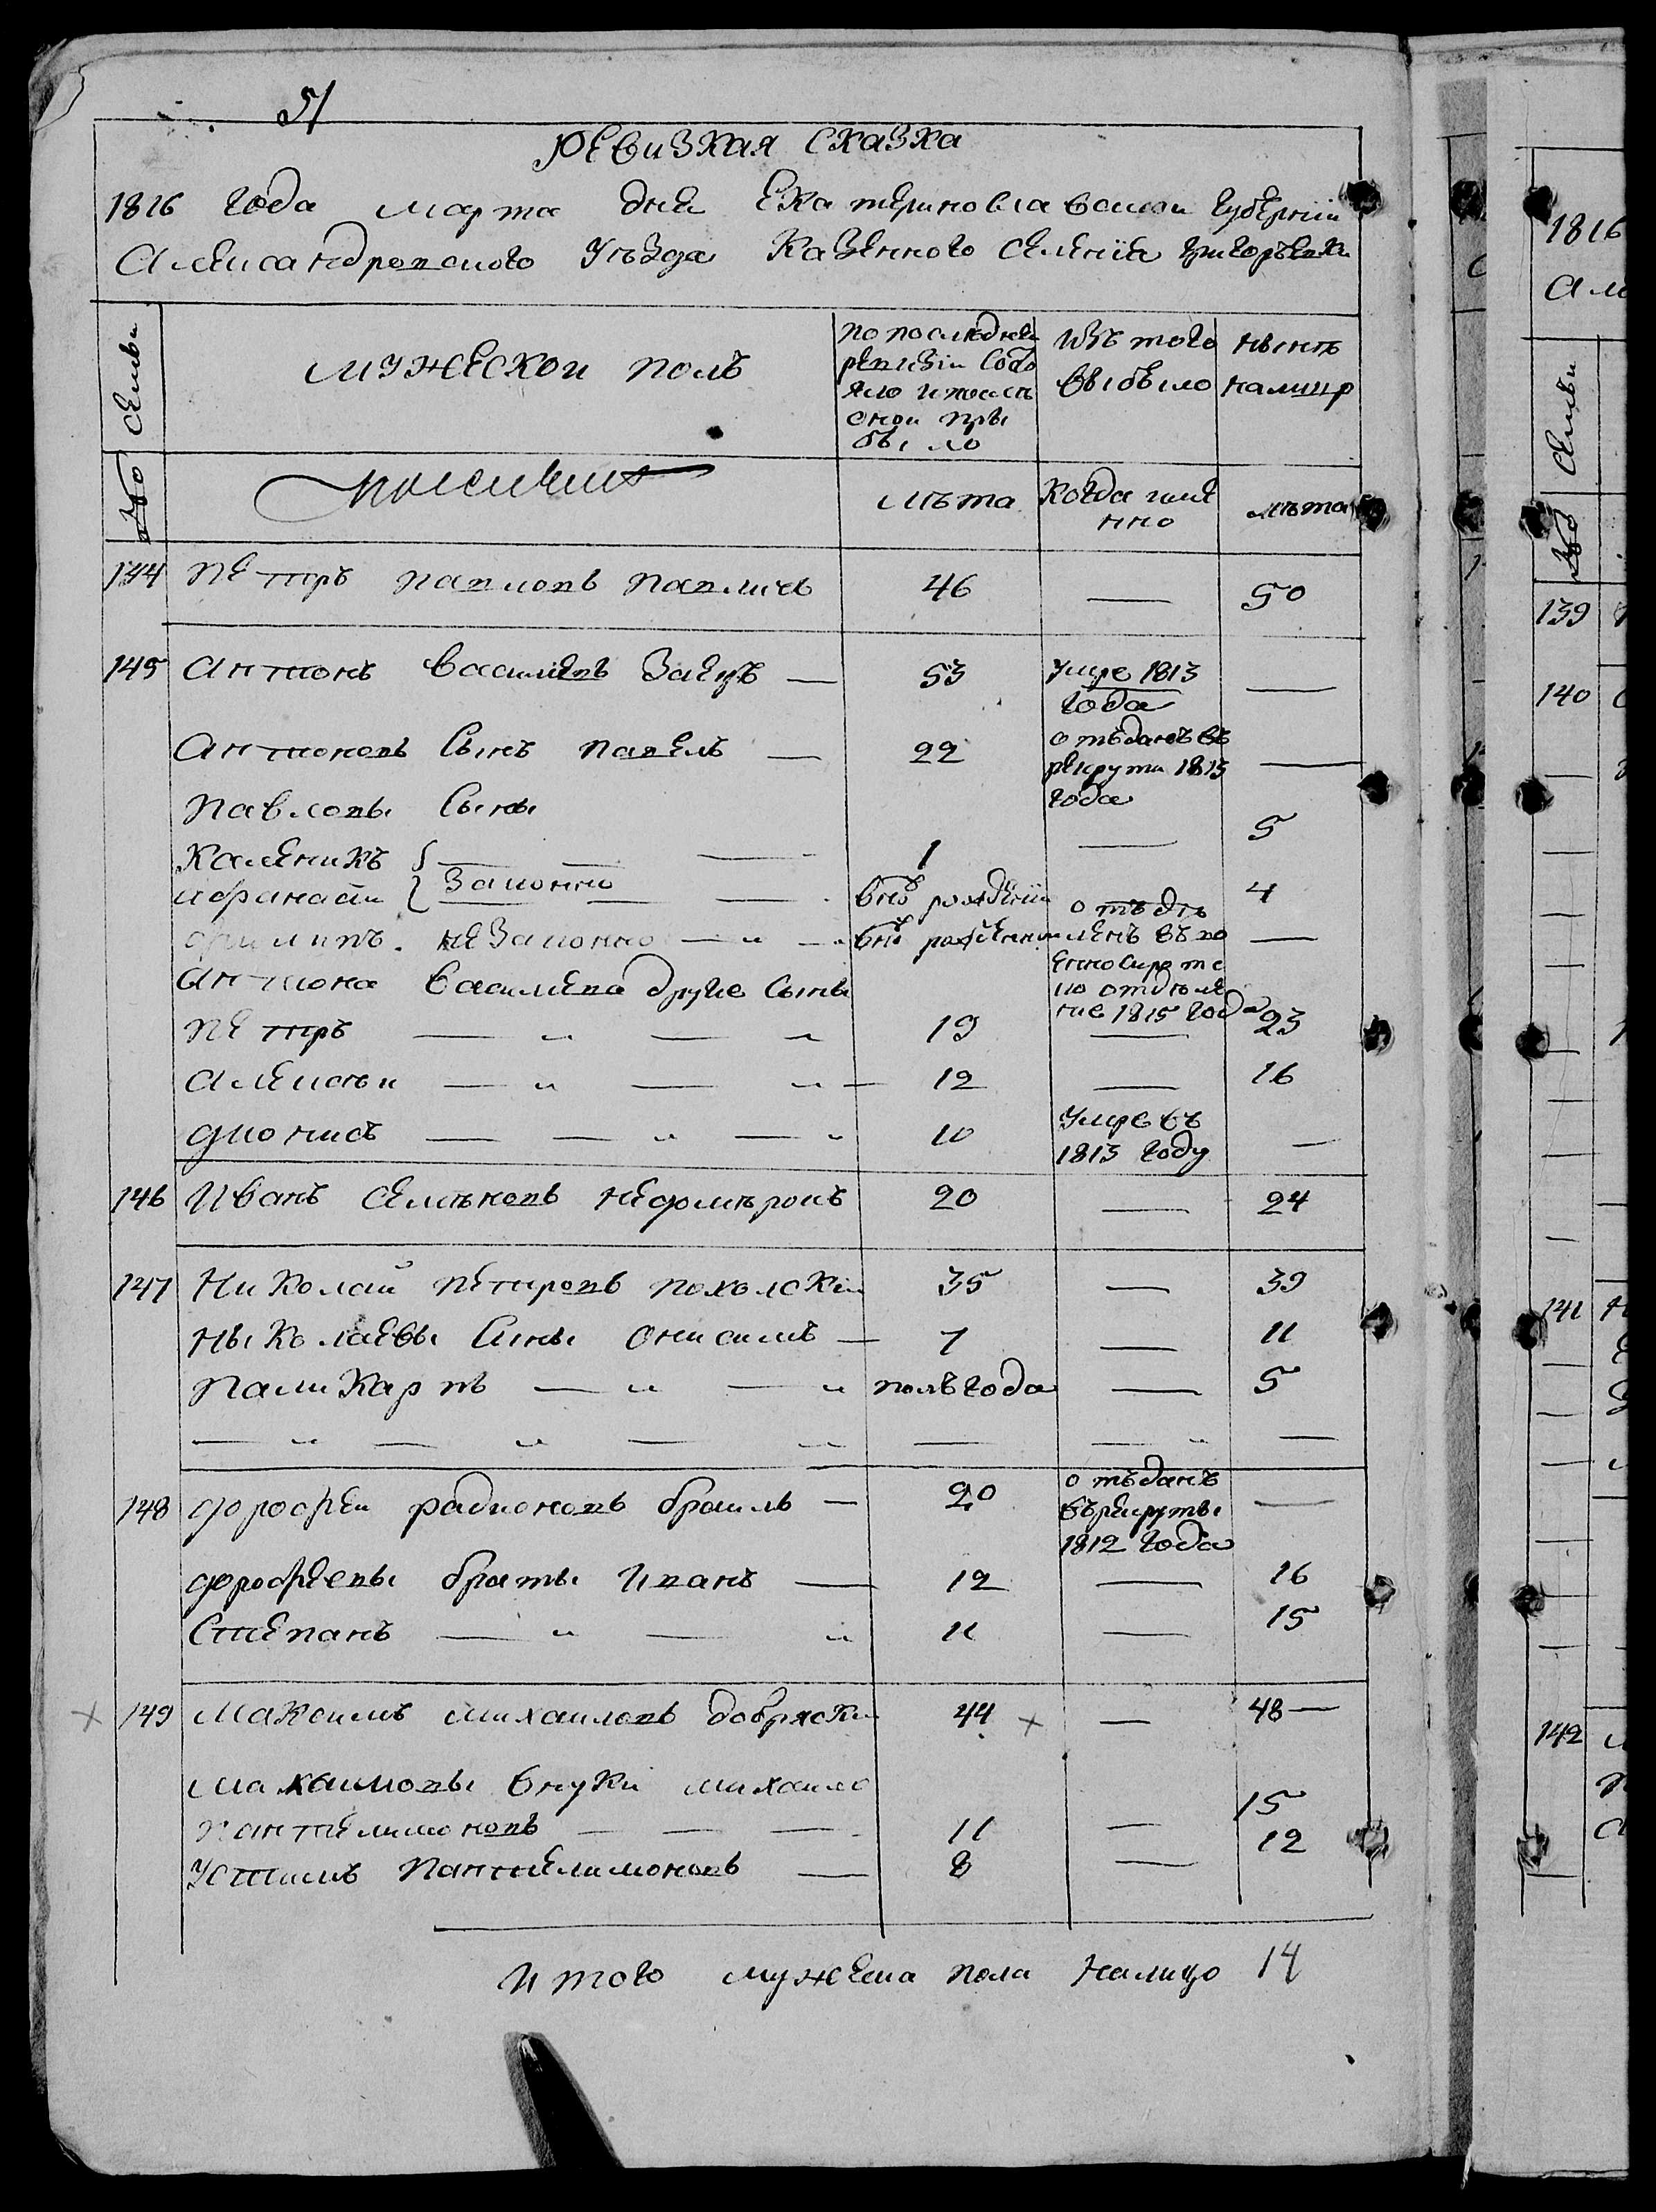 51
Ревизкая сказка
1816 года марта дня Екатериновславской губернии
Александровского Уезда Казенного селения Григорьевки
Семьи
Мужеской полъ
По последней ревизии состояло и после оной прибыло
Изъ того выбыло
Ныне налицо
№
лета
Когда имянно
лета
144 Петръ Павловъ Павличъ 46 — 50
145 Антонъ Василевъ Заецъ — 53 умре 1813 года —
Антоновъ сынъ Павелъ — 22 отъданъ въ рекруты 1813 года —
Павловы сыны
Каленикъ — — — 1 — 5
Афанасии Законно — — — вно рожденнии 4
Филипъ. незаконно — „ — „ вно рожденнии отъделенъ въ военносиротское отделение 1815 года —
Антона Василева другие сыны
Петръ — „ — „ 19 — 23
Алексеи — „ — „ — 12 — 16
Дионисъ — — „ — „ 10 Умре въ 1813 году —
146 Иванъ Семеновъ Недомеровъ 20 — 24
147 Николай Петровъ Похолскии 35 — 39
Ныколаевы сины Онисимъ — 7 — 11
Паликарпъ — „ — „ полъ года — 5
— „ — „ — „ — — „ —
148 Дорофеи Радионовъ Браиль — 20 отъданъ въ рекруты 1812 года —
Дорофеевы браты Иванъ — 12 — 16
Степанъ — „ — „ 11 — 15
× 149 Максимъ Михаиловъ Добряски 44 × — 48 —
Максимовы внуки Михаило
Пантелимоновъ — — — 11 — 15
Устимъ Пантелимоновъ — 8 — 12
Итого мужеска пола налицо 14
1816
Але
Семьи
№
139
140
141
142